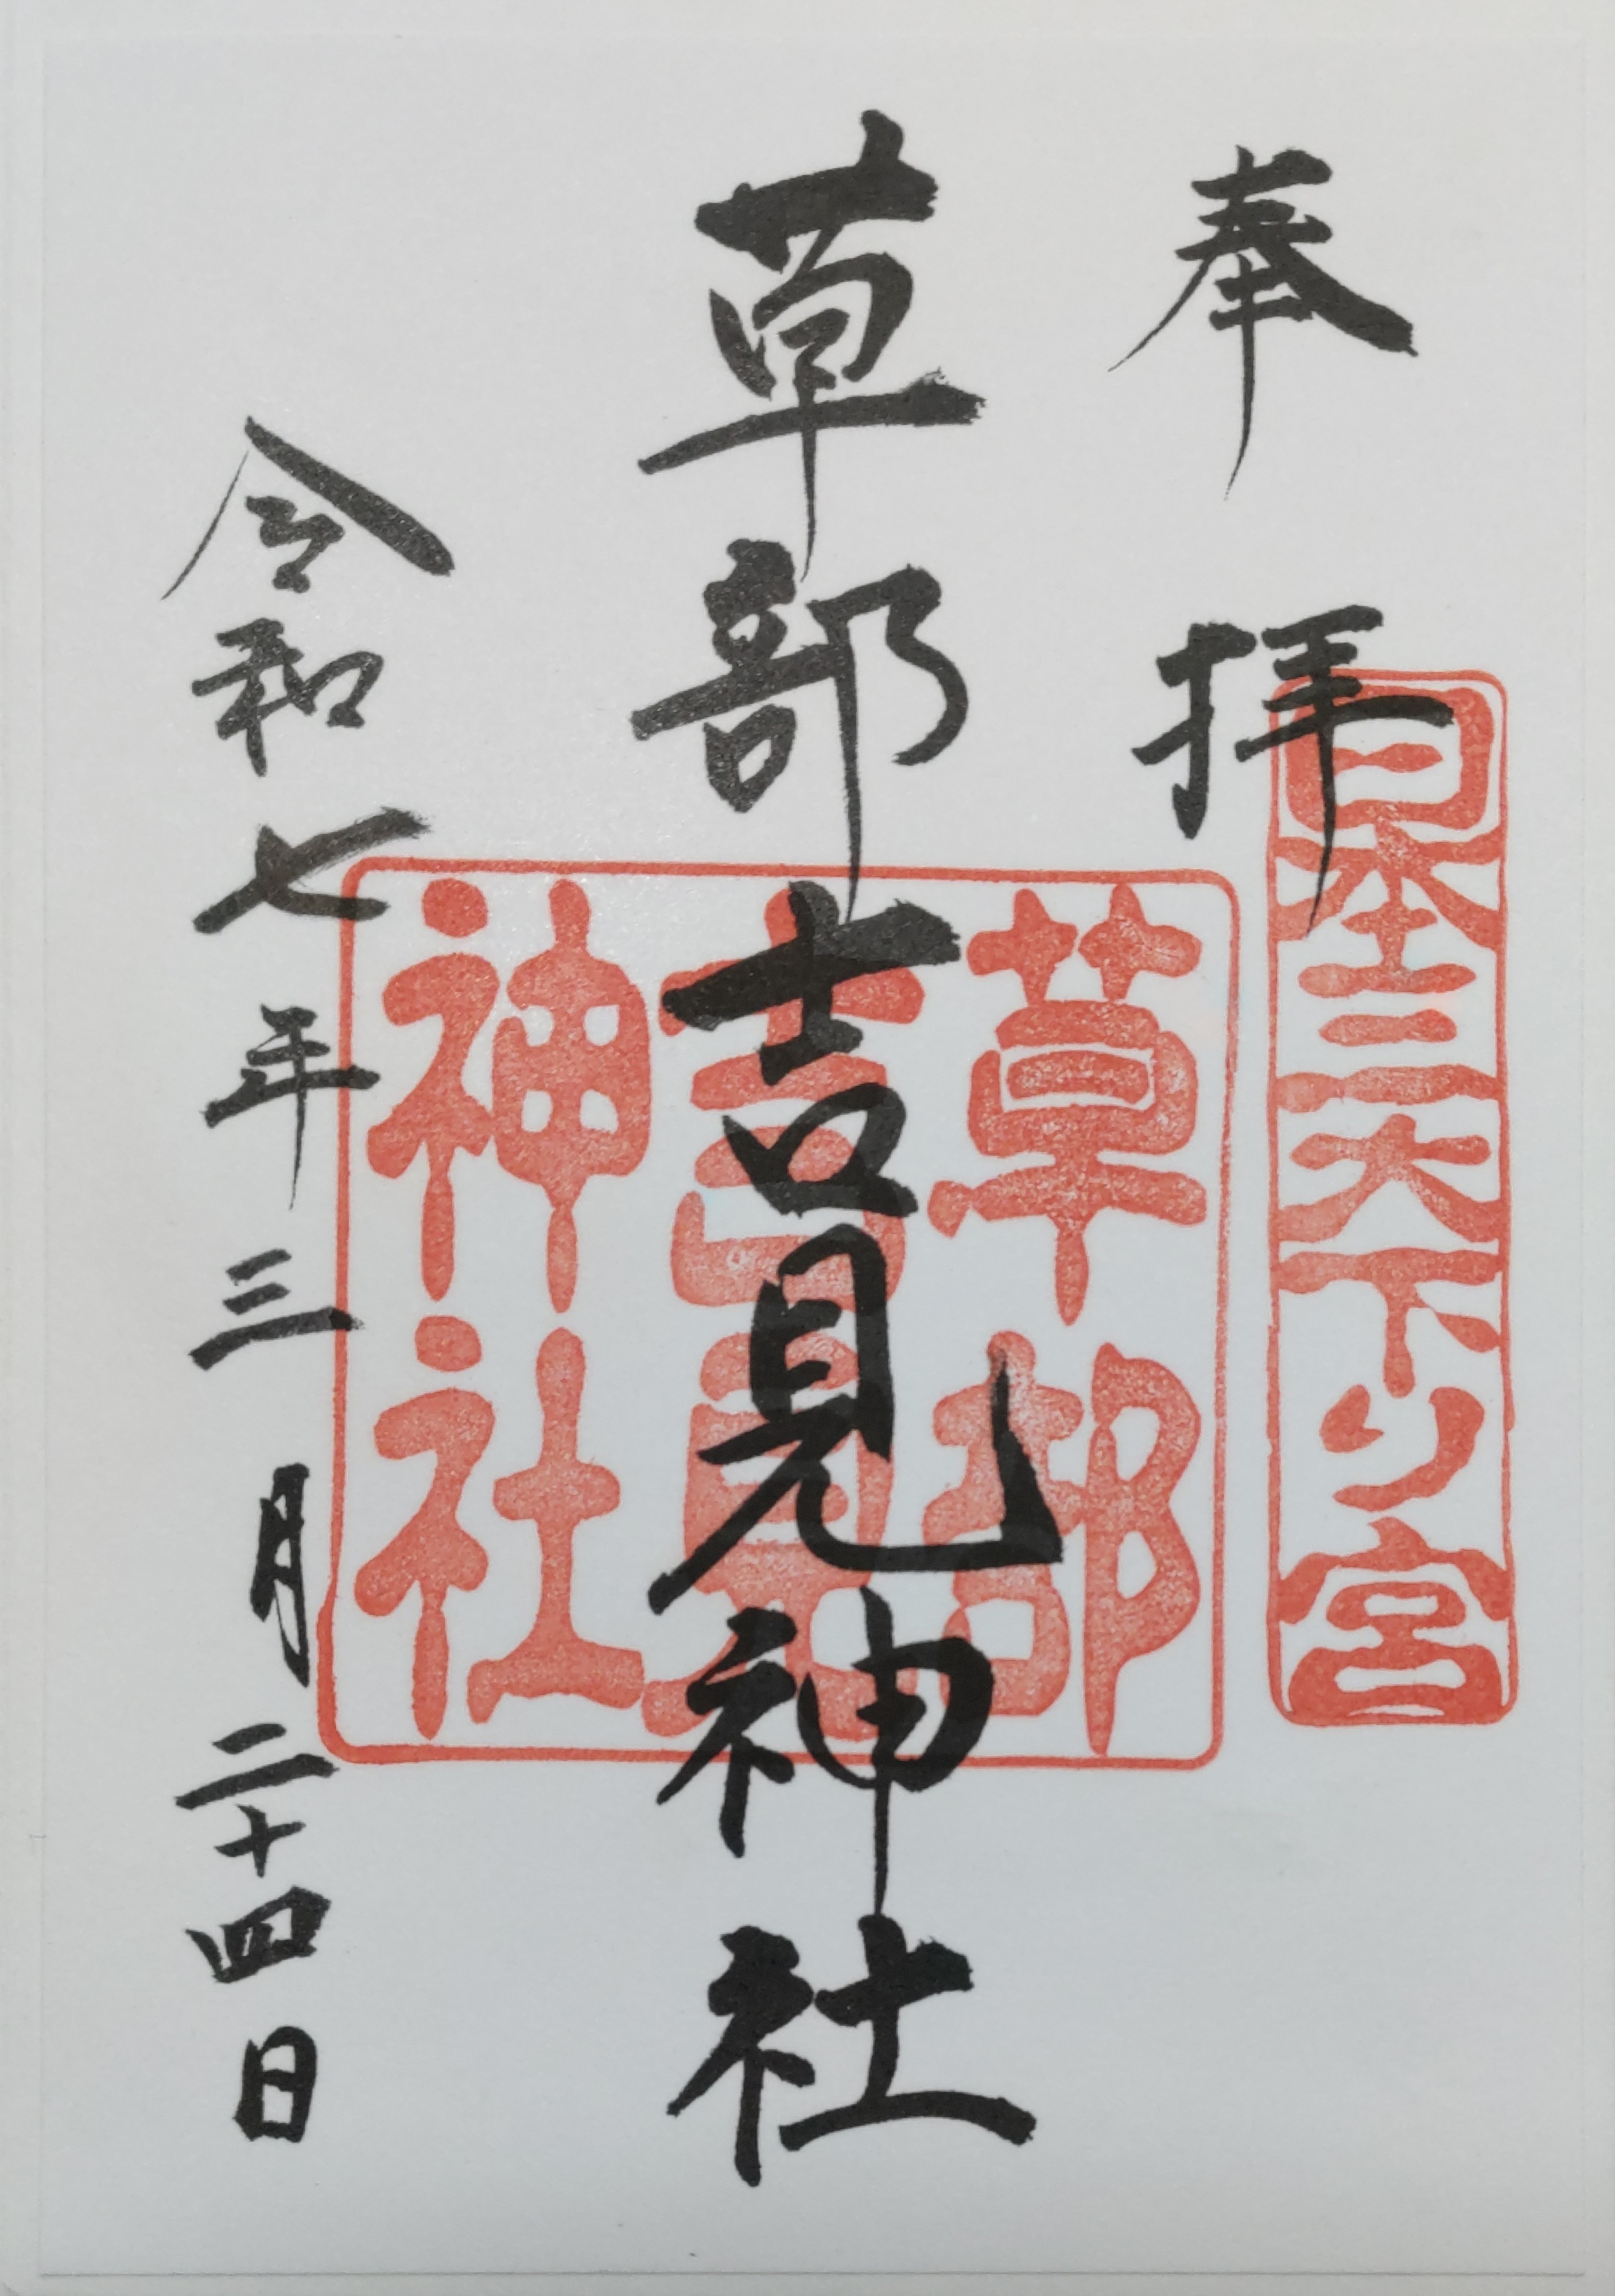 奉拝
日本三大下り宮
草部吉見神社
草部
吉見
神社
令和七年三月二十四日